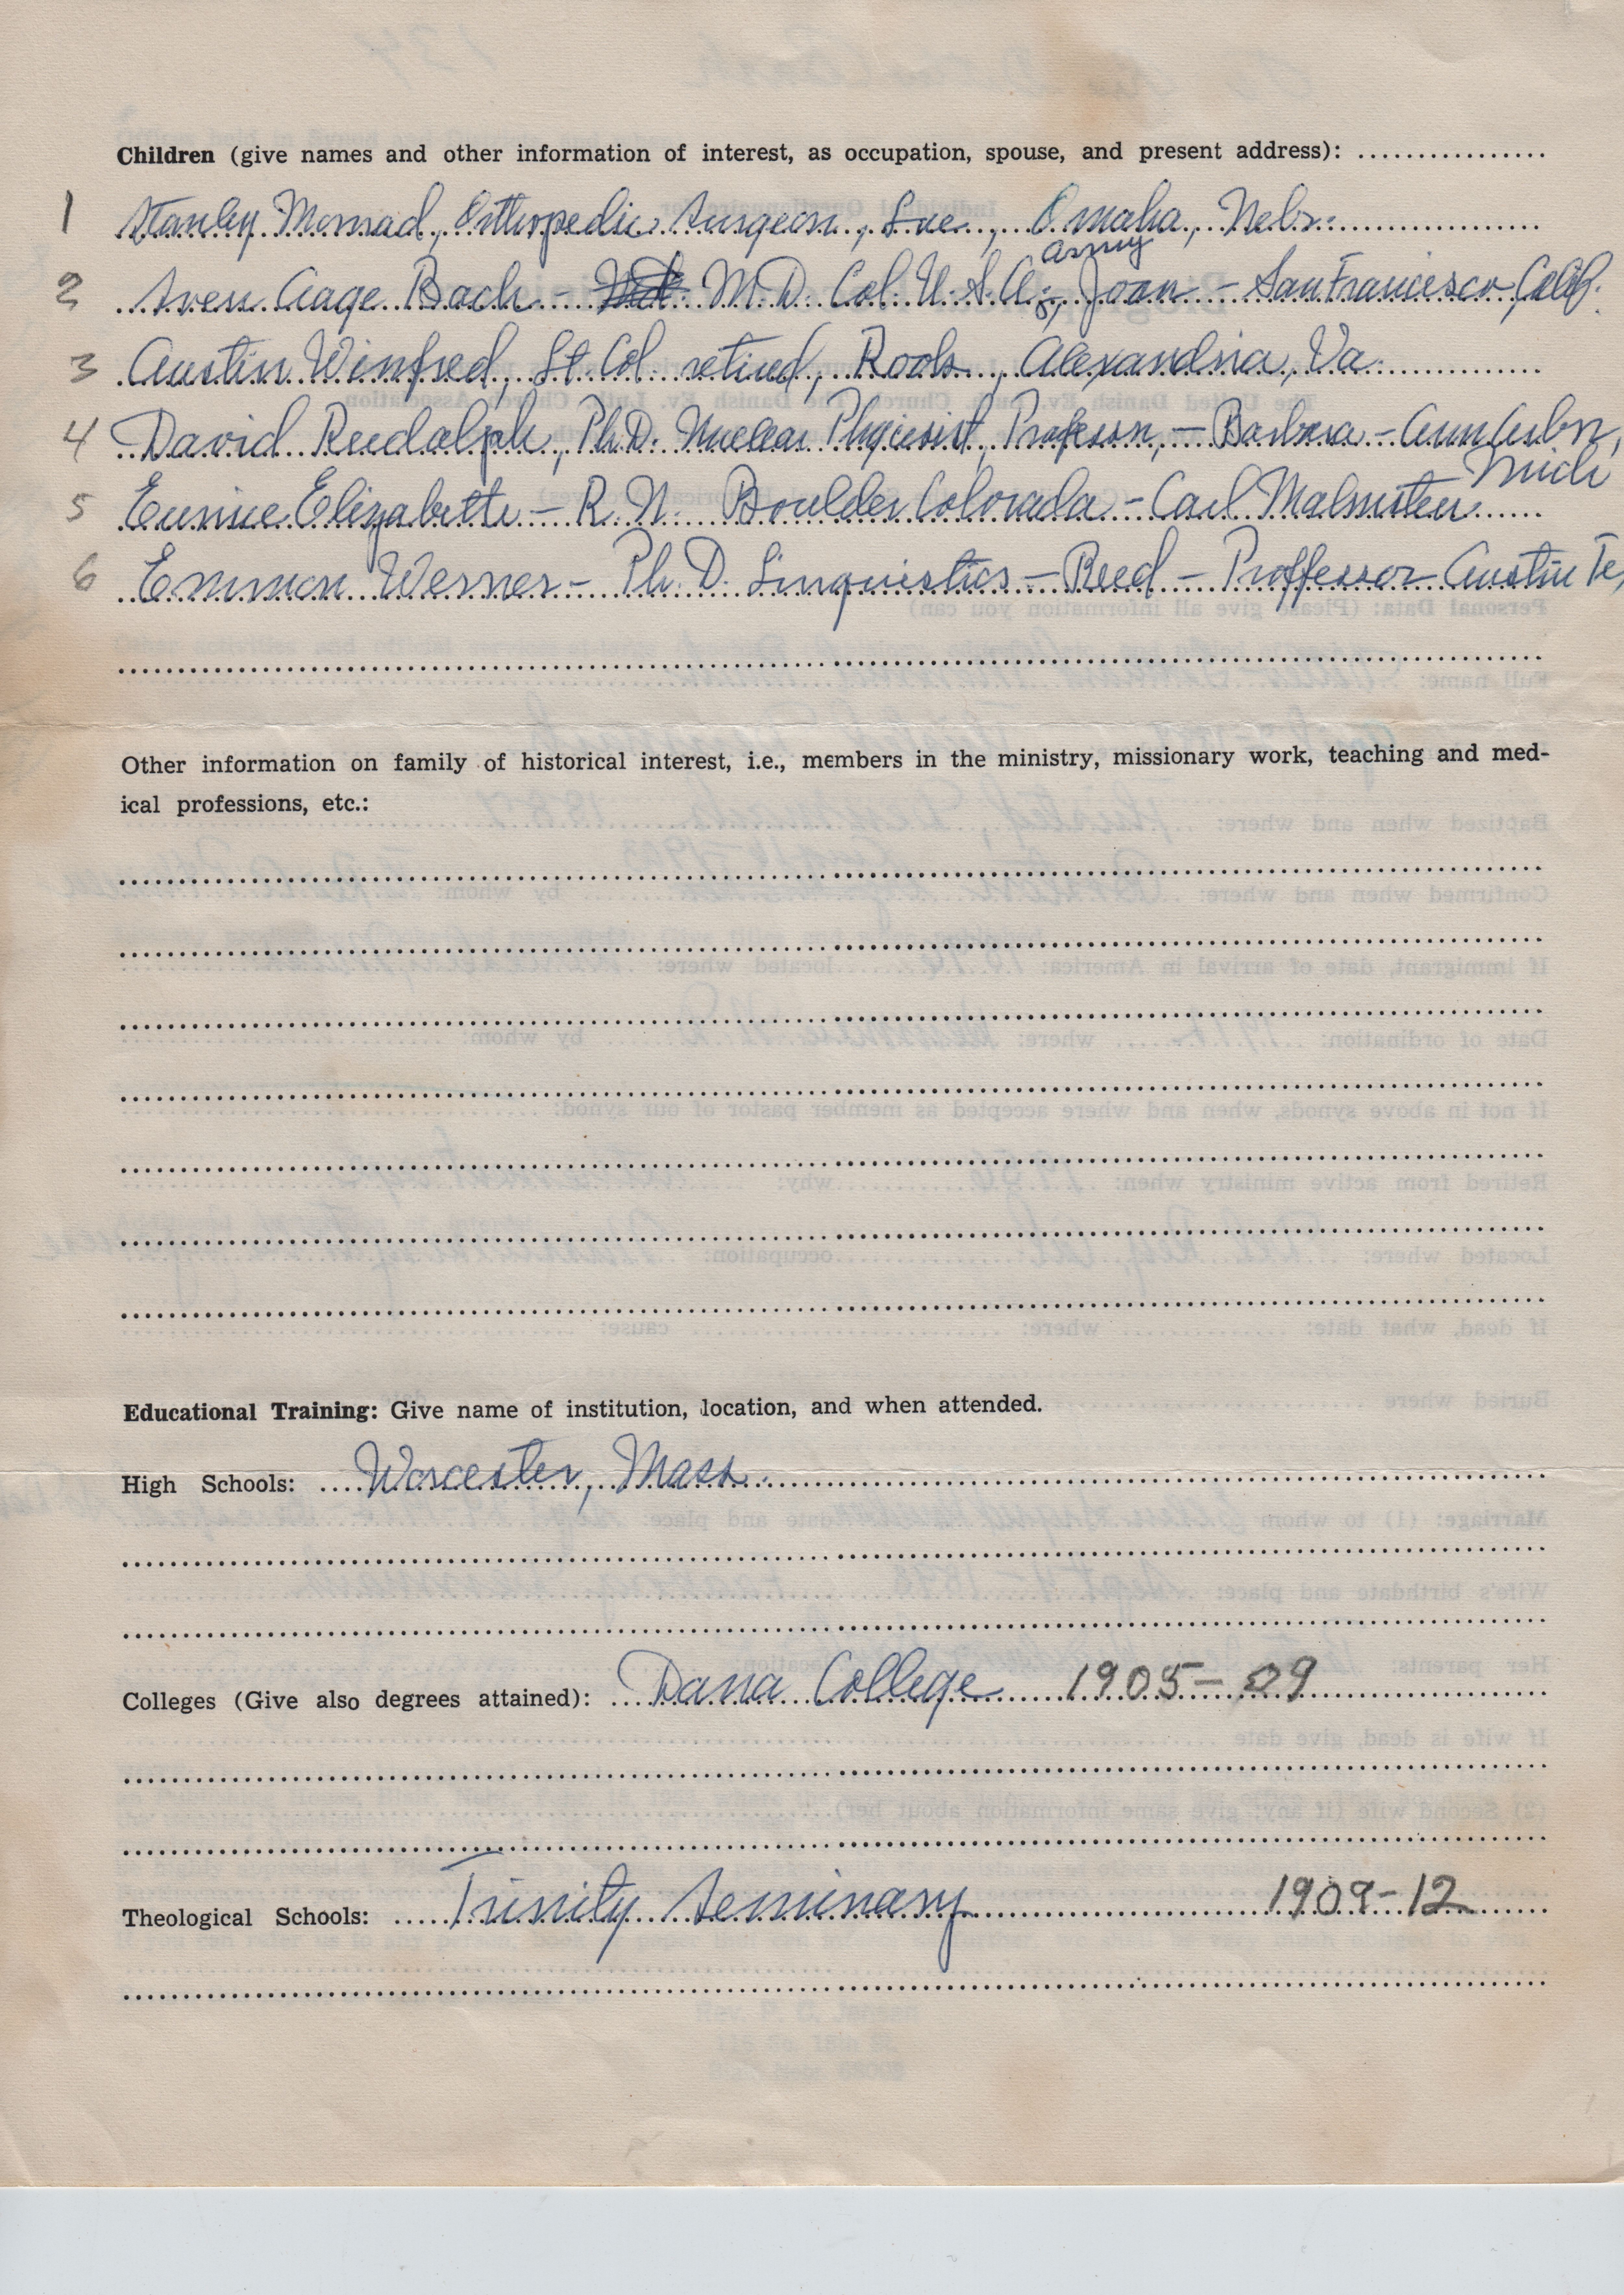 Children (give names and other information of interest, as occupation, spouse, and present address):
1 Stanley Monrad, Orthopedic Surgeon, Sue, Omaha, Nebr.
army
2 Sven Aage Bach - M.D. Col. U.S.A., Joan - San Francisco, Calif.
3 Austin Winfred, Lt Col retired, , Alexandria, Va.
4 David Rudolph, Ph.D. Nuclear Physicist, Professor, - Barbara - Ann Arbor,
Mich
5 Eunice Elizabeth - R.N. Boulder Colorada - Carl Malmsten
6 Emmon Werner - Ph.D. Linquistics - Reed - Proffessor Austin Te,
Other information on family of historical interest, i.e., members in the ministry, missionary work, teaching and med-
ical professions, etc.:
Educational Training: Give name of institution, location, and when attended.
High Schools: Worcester, Mass.
Colleges (Give also degrees attained): Dana College 1905-09
Theological Schools: Trinity Seminary 1909-12